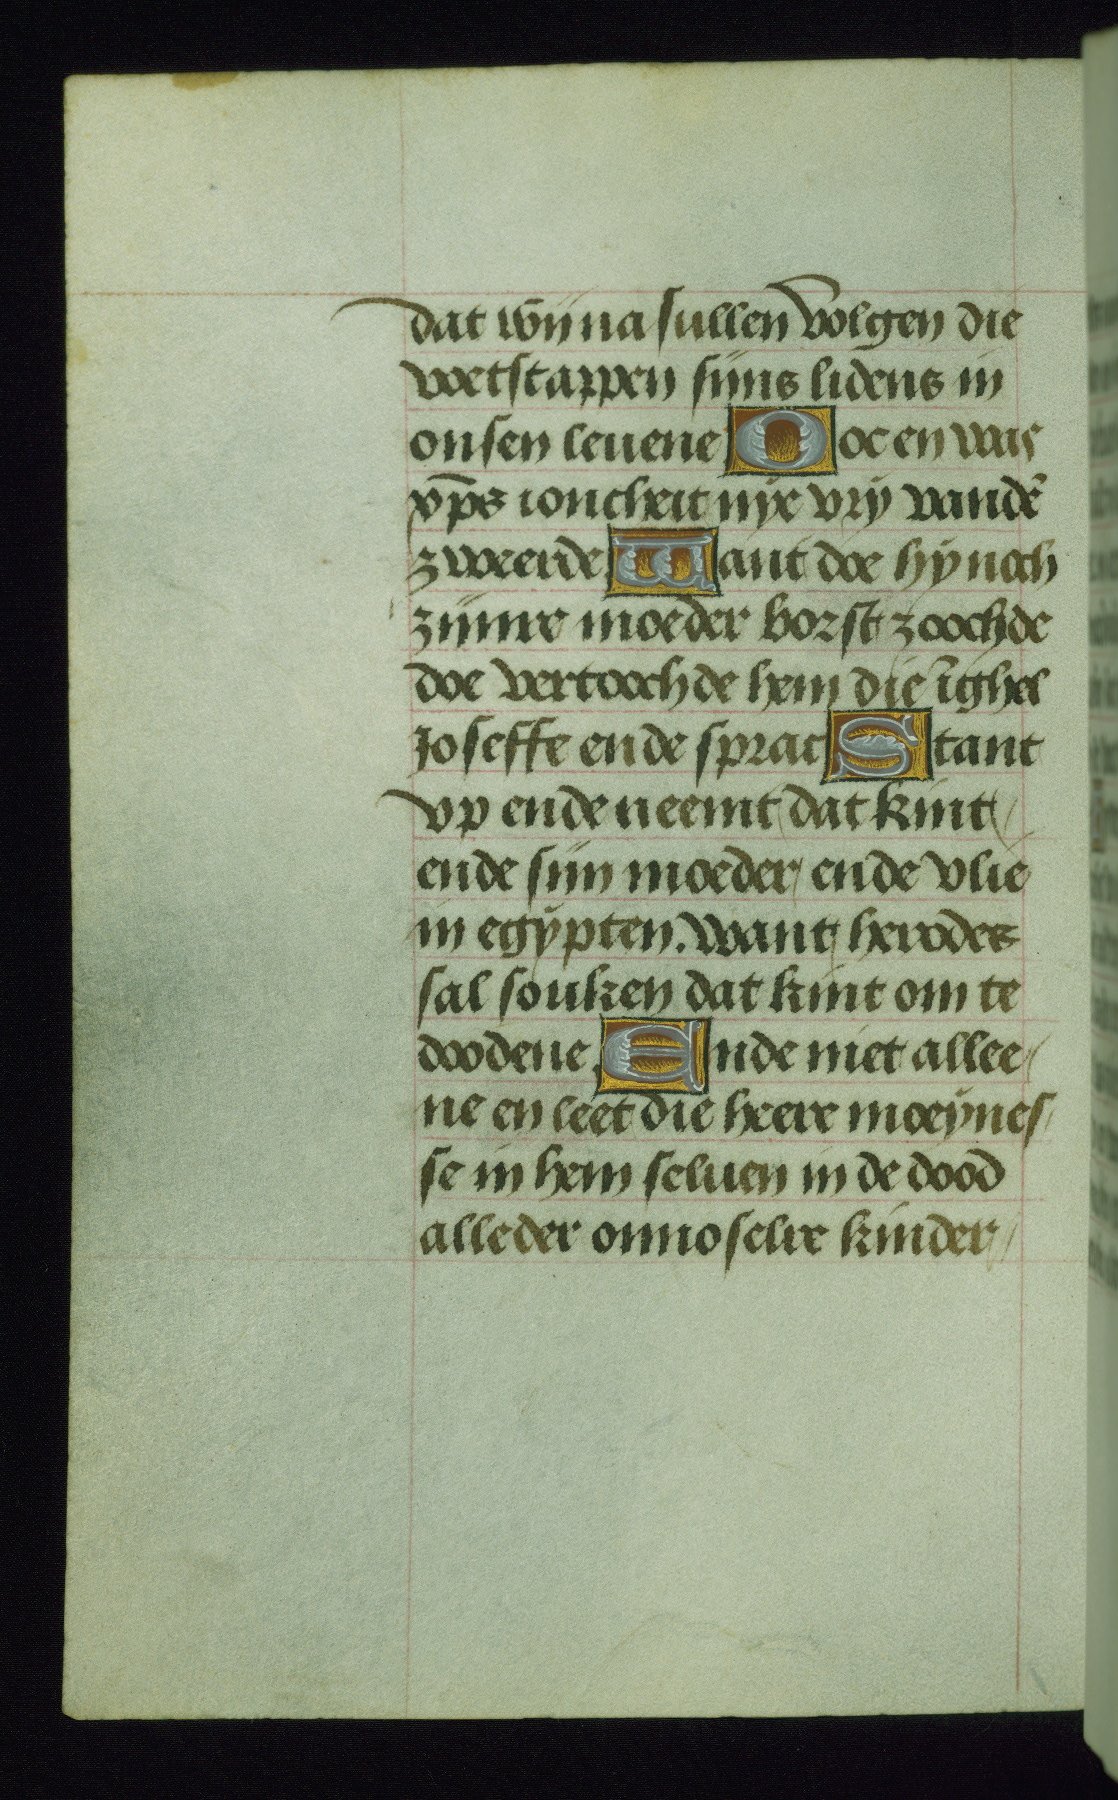 dat wij na sullen volgen die
voetstappen sijns lidens in
onsen leuene Ooc en was
xp̄s ioncheit nye vrij vandē
zweerde Want doe hy noch
zijnre moeder borst zoochde
doe vertoochde hem die īghel
Joseffe ende sprac Stant
vp ende neemt dat kint
ende sijn moeder ende vlie
in egypten. want herodes
sal souken dat kint om te
doodene. Ende niet allee
ne en leet die heere moeynes
se in hem seluen in de dood
alle der onnoselre kinder